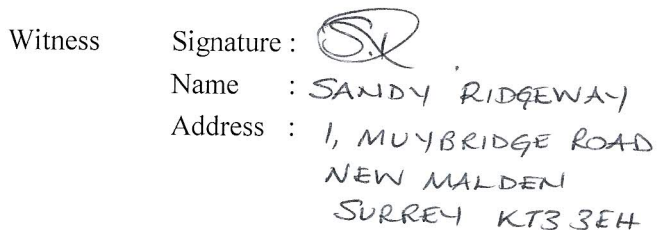 Witness Signature :
Name : SANDY RIDGEWAY
Address : 1, MUYBRIDGE ROAD
NEW MALDEN
SURREY KT3 3EH